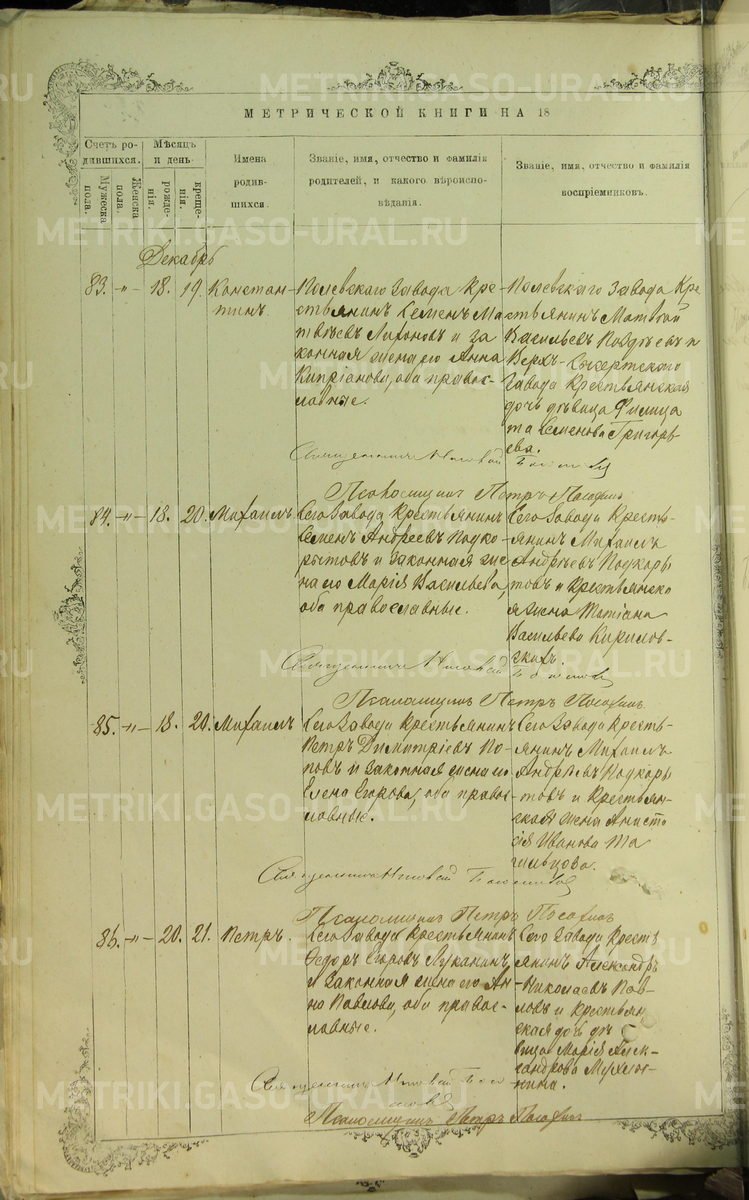 МЕТРИЧЕСКОЙ КНИГИ НА 18
Счетъ родившихся.
Мужеска пола.
Женска пола.
Мѣсяцъ и день
рожденія.
крещенія.
Имена родившихся.
Званіе, имя, отчество и фамилія родителей, и какого вѣроисповѣданія.
Званіе, имя, отчество и фамилія воспріемниковъ.
Декабрь
83. -"- 18. 19.
Констан-
тинъ.
Полевскаго завода кре-
стьянинъ Семенъ Ма-
твѣевъ и за
конная жена его Анна
Кипріанова, оба правос-
лавные.
Полевскаго завода Кре
стьянинъ Матвей
Васильевъ и
Верхъ-Сысертскаго
завода Крестьянская
дочь дѣвица Филица
та Семенова Григорь-
ева.
Священникъ
Псаломщикъ Петръ
84. -"- 18. 20.
Михаилъ
Сего завода Крестьянинъ
Семенъ Андреевъ Подко-
рытовъ и законная же
на его Марія Васильева,
оба православные.
Сего завода Кресть-
янинъ Михаилъ
Андрѣевъ Подкоры
товъ и Крестьянска
я жена Татіана
Васильева Кирилов-
скихъ.
Священникъ
Псаломщикъ Петръ
85. -"- 18. 20.
Михаилъ
Сего завода Крестьянинъ
Петръ Димитріевъ По-
повъ и законная жена его
Елена Егорова, оба право
славные.
Сего завода Кресть-
янинъ Михаилъ
Андреевъ Подкоры
товъ и Крестьян-
ская жена Анаста
сія Иванова Та
гильцова.
Священникъ
Псаломщикъ Петръ
86. -"- 20. 21.
Петръ.
Сего завода Крестьянинъ
Ѳедоръ Егоровъ Луканинъ
и законная жена его Ан
на Павлова, оба правос-
лавные.
Сего завода Кресть
янинъ Александръ
Николаевъ Пав-
ловъ и Крестьян
ская дочь дѣ
вица Марія Алек-
сандрова
Священникъ
Псаломщикъ Петръ
METRIKI.GASO-URAL.RU